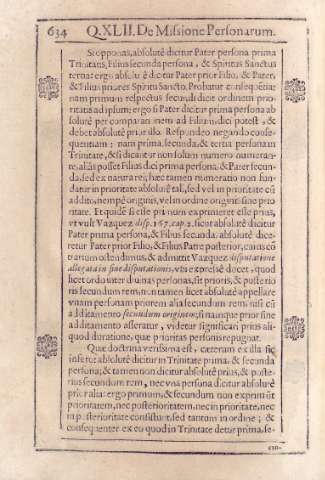 634 Q.XLII. De Missione Personarum.
Si opponas, absolutè dicitur Pater persona prima
Trinitatis, Filius secunda persona, & Spiritus Sanctus
tertia: ergo absolutè dicitur Pater prior Filio, & Pater,
& Filius priores Spiritu Sancto. Probatur consequẽtia:
nam primum respectus secundi dicit ordinem prio-
ritatis ad ipsum; ergo si Pater dicitur prima persona ab
solutè per comparationem ad Filium, dici potest, &
debet absolutè prior illo. Respondeo negando conse-
quentiam; nam prima, secunda, & tertia persona in
Trinitate, & si dicantur non solum numero numeran-
te, aliàs posset Filius dici prima persona, & Pater secun-
da, sed ex natura rei, hæc tamen numeratio non fun-
datur in prioritate absolutè tali, sed vel in prioritate cũ
addito, nempè originis, vel in ordine originis sine prio
ritate. Et quidẽ si esse primum exprimeret esse prius,
et vult Vazquez disp. 167. cap. 2. sicut absolutè dicitur
Pater prima persona, & Filius secunda, absolutè dice-
retur Pater prior Filio, & Filius Patre posterior, cuius cõ
trarium ostendimus, & admittit Vazquez disputatione
allegata in fine disputationis, vbi expressè docet, quod
licet ordo inter diuinas personas, sit prioris, & posterio
ris secundum rem, non tamen licet absolutè appellare
vnam personam priorem alia secundum rem, nisi cũ
additamento secundum originem; si namque prior sine
additamento asseratur, videtur significari prius ali-
quod duratione, quæ prioritas personis repugnat.
Quæ doctrina verissima est, cæterum ex illa sic
insurgo: absolutè dicitur in Trinitate prima, & secunda
persona; & tamen non dicitur absolutè prius, & poste-
rius secundum rem, nec vna persona dicitur absolutè
prior alia: ergo primum, & secundum non exprimũt
prioritatem, nec posterioritatem, nec in prioritate, nec
in posterioritate consistunt, sed tantum in ordine; &
consequenter ex eo quod in Trinitate detur prima, se-